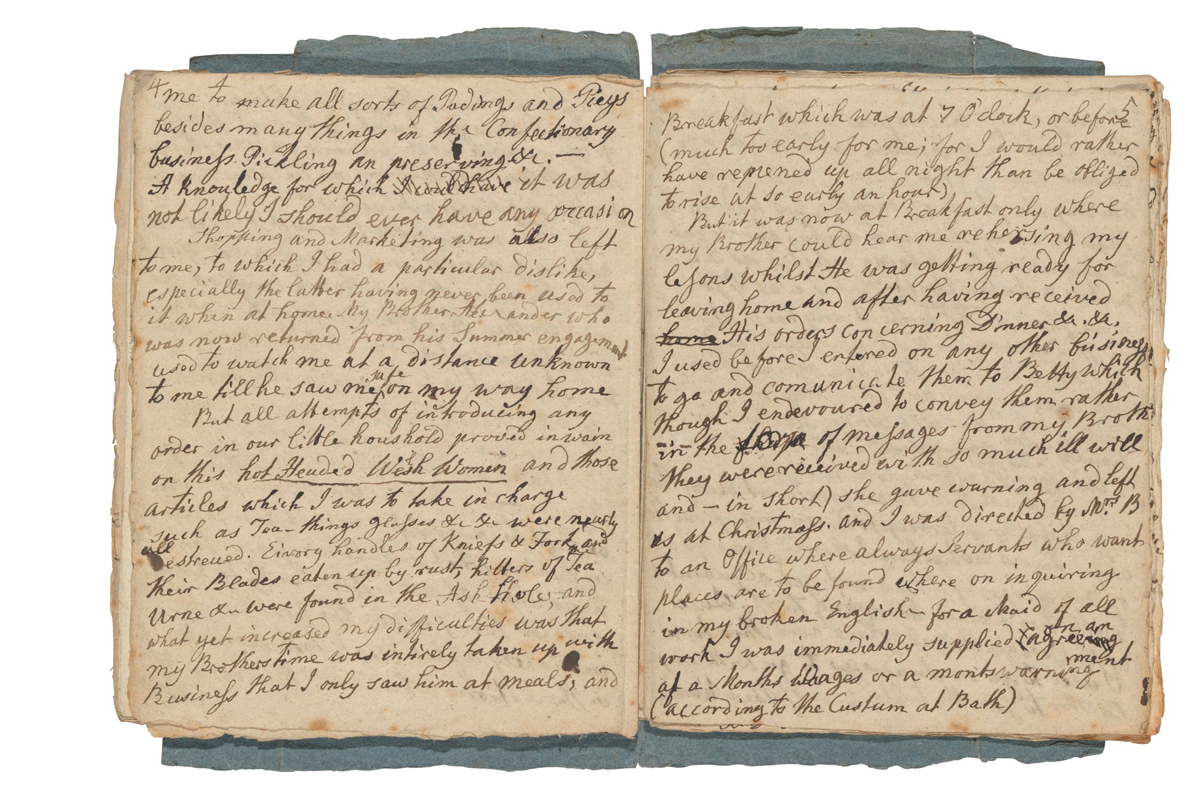 4
me to make all sorts of Pudings and Pieys
besides many things in the Confectionary
business. Pickling an preserving &c. —
A knowledge for which I could have it was
not likely I should ever have any occasion
Shopping and Marketing was also left
to me, to which I had a particular dislike,
especially the latter having never been used to
it when at home. My Brother Alexander who
was now returned from his Summer engagement
used to watch me at a distance unknown
to me till he saw me safe on my way home
But all attempts of introducing any
order in our little houshold proved in wain
on this hot Headed Welsh Women and those
articles which I was to take in charge
such as Tea-things glasses &c &c were nearly
all estreued. Eivory handles of Kniefs & Forks and
their Blades eaten up by rust, hilters of Tea
Urne &c were found in the Ash hole, and
what yet increased my difficulties was that
my Brothers time was intirely taken up with
Business that I only saw him at meals, and
5
Breakfast which was at 7 O'clock, or before
(much too early for me; for I would rather
have remened up all night than be obliged
to rise at so early an hour)
But it was now at Breakfast only where
my Brother could hear me rehersing my
lesons whilst He was getting ready for
leaving home and after having received
home His orders concerning Dinner &c. &c.
I used before I entered on any other business
to go and comunicate them to Betty which
though I endevoured to convey them rather
in the form of messages from my Brother
they were received with so much ill will
and — in short) she gave warning and left
us at Christmass. and I was directed by Mrs B
to an Office where always Servants who want
places are to be found where on inquiring
in my broken English — for a Maid of all
work I was immediately supplied (on an agreement
at a Months Wages or a months warning
(according to the Custum at Bath)